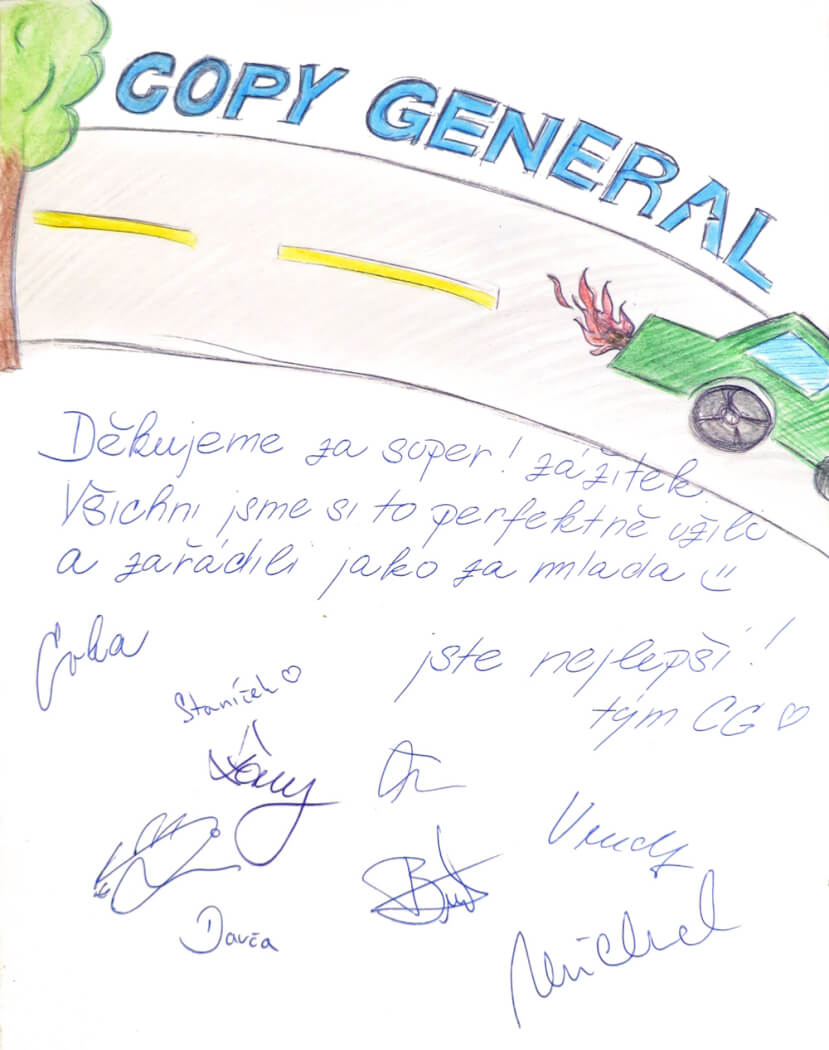 COPY GENERAL
Děkujeme za super! zážitek
Všichni jsme si to perfektně užili
a zařádili jako za mlada
jste nejlepší!
Staníček
tým CG
Vendy
Davča
Michal